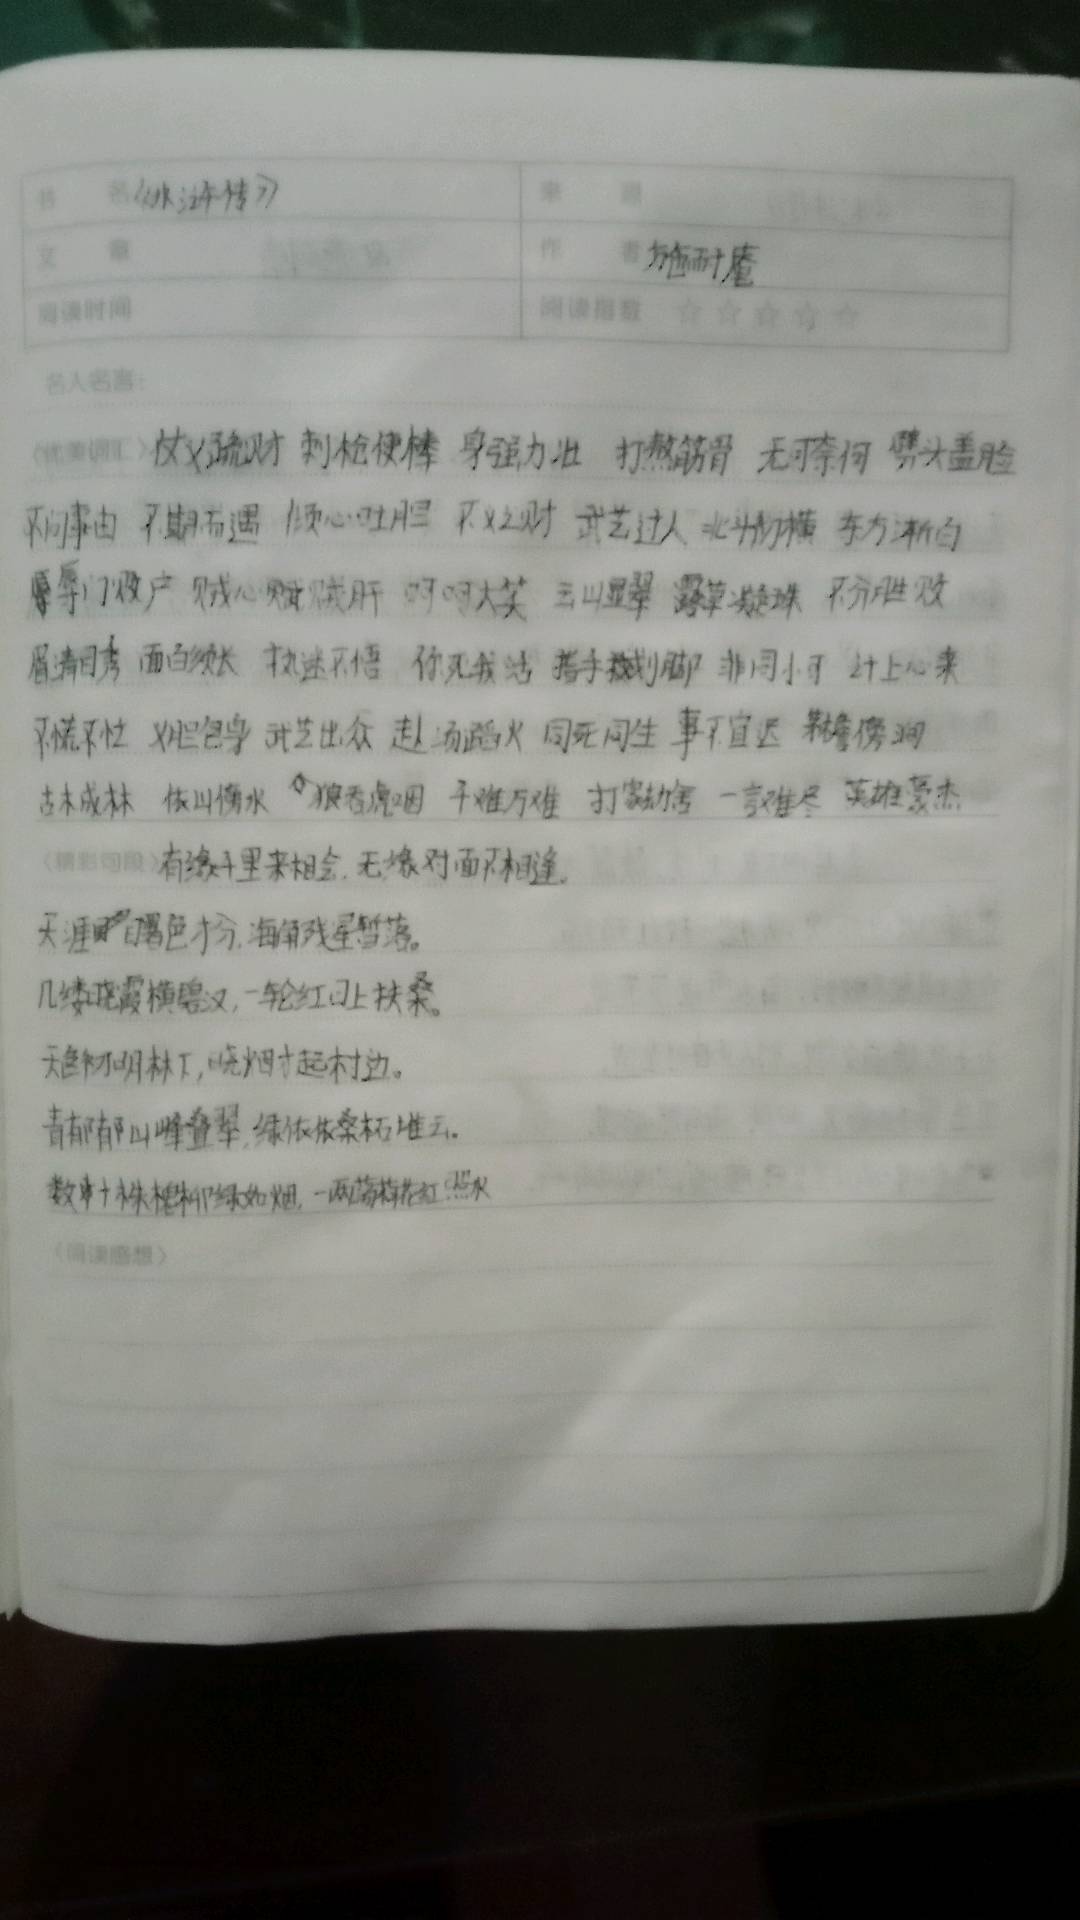 书 名《水浒传》 来 源
文 章 作 者 施耐庵
阅读时间 阅读指数 ☆☆☆☆☆
名人名言：
〈优美词汇〉仗义疏财 刺枪使棒 身强力壮 打熬筋骨 无可奈何 劈头盖脸
不问事由 不期而遇 倾心吐胆 不义之财 武艺过人 北斗初横 东方渐白
辱门败户 贼心贼肝 呵呵大笑 云山显翠 露草凝珠 不分胜败
眉清目秀 面白须长 执迷不悟 你死我活 指手划脚 非同小可 计上心来
不慌不忙 义胆包身 武艺出众 赴汤蹈火 同死同生 事不宜迟 茅檐傍涧
古木成林 依山傍水 狼吞虎咽 千难万难 打家劫舍 一言难尽 英雄豪杰
〈精彩句段〉有缘千里来相会，无缘对面不相逢。
天涯曙色才分，海角残星暂落。
几缕晓霞横碧汉，一轮红日上扶桑。
天色初明林下，晓烟才起村边。
青郁郁山峰叠翠，绿依依桑柘堆云。
数十株槐柳绿如烟，一两荡荷花红照水
〈阅读感想〉